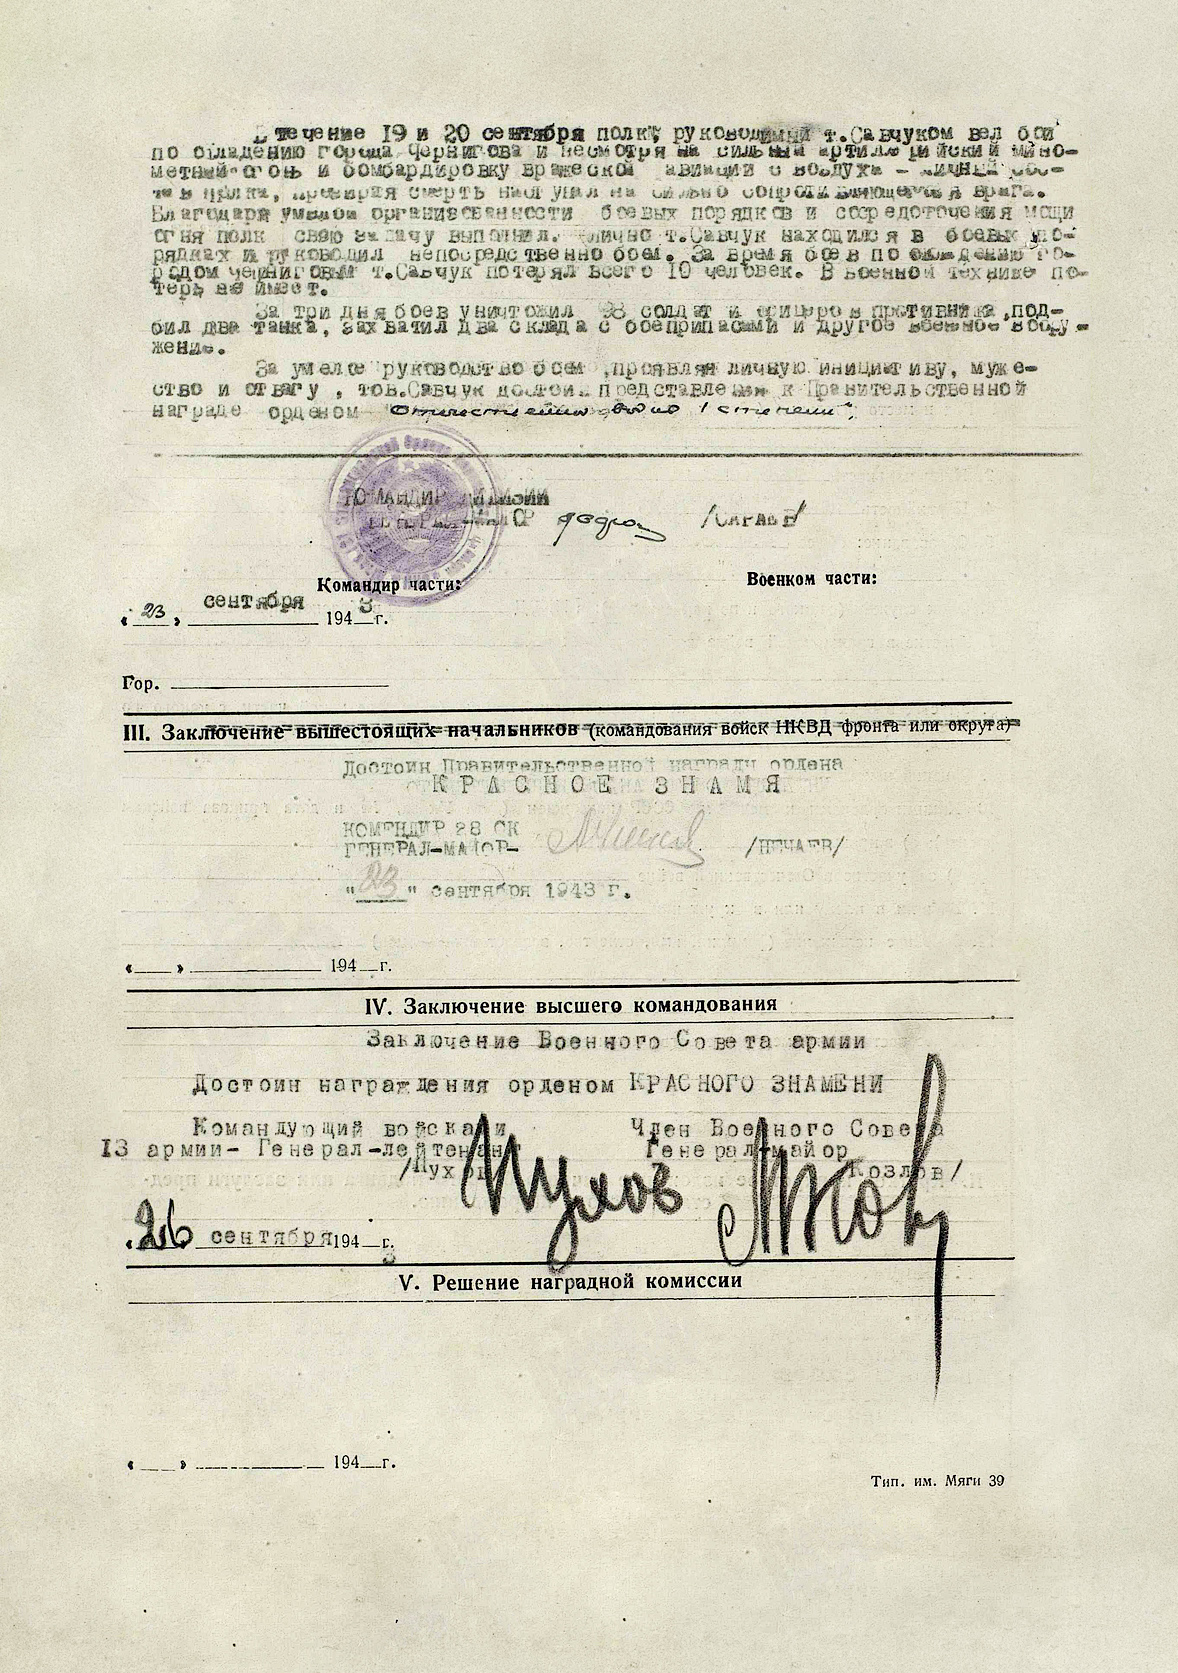 В течение 19 и 20 сентября полк, руководимый т.Савчуком вел бои
по овладению города Чернигова и несмотря на сильный артиллерийский мино-
метный огонь и бомбардировку вражеской авиации с воздуха - личный сос-
тав полка, презирая смерть наступал на сильно сопротивляющегося врага.
Благодаря умелой организованности боевых порядков и сосредоточения мощи
огня полк свою задачу выполнил. Лично т.Савчук находился в боевых по-
рядках и руководил непосредственно боем. За время боев по овладению го-
родом Черниговым т.Савчук потерял всего 10 человек. В военной технике по-
терь не имеет.
За три дня боев уничтожил 98 солдат и офицеров противника, под-
бил два танка, захватил два склада с боеприпасами и другое военное воору-
жение.
За умелое руководство боем, проявляя личную инициативу, муже-
ство и отвагу, тов.Савчук достоин представления к Правительственной
награде орденом "Отечественной войны I степени",
КОМАНДИР ДИВИЗИИ
ГЕНЕРАЛ-МАЙОР /САРАЕВ/
Командир части: Военком части:
«23» сентября 1943 г.
Гор.
III. Заключение вышестоящих начальников (командования войск НКВД фронта или округа)
Достоин Правительственной награду ордена
КРАСНОЕ ЗНАМЯ
КОМЕНДИР 28 СК
ГЕНЕРАЛ-МАЙОР- /НЕЧАЕВ/
"23" сентября 1943 г.
« » 194 г.
IV. Заключение высшего командования
Заключение Военного Совета армии
Достоин награждения орденом КРАСНОГО ЗНАМЕНИ
Командующий войсками Член Военного Совета
13 армии- Генерал-лейтенант Генерал-майор
/Пухов/ /Козлов/
«26» сентября 1943 г.
V. Решение наградной комиссии
« » 194 г.
Тип. им. Мяги 39